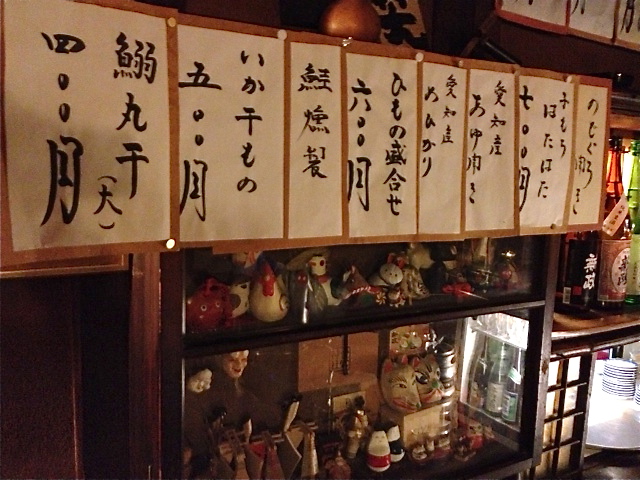 のどぐろ肉きき
子もち
はたはた
七〇〇円
愛知産
あゆ肉き
愛知産
めひかり
ひもの盛合せ
六〇〇円
鮭燻製
いか干もの
五〇〇円
鰯丸干
(大)
四〇〇円